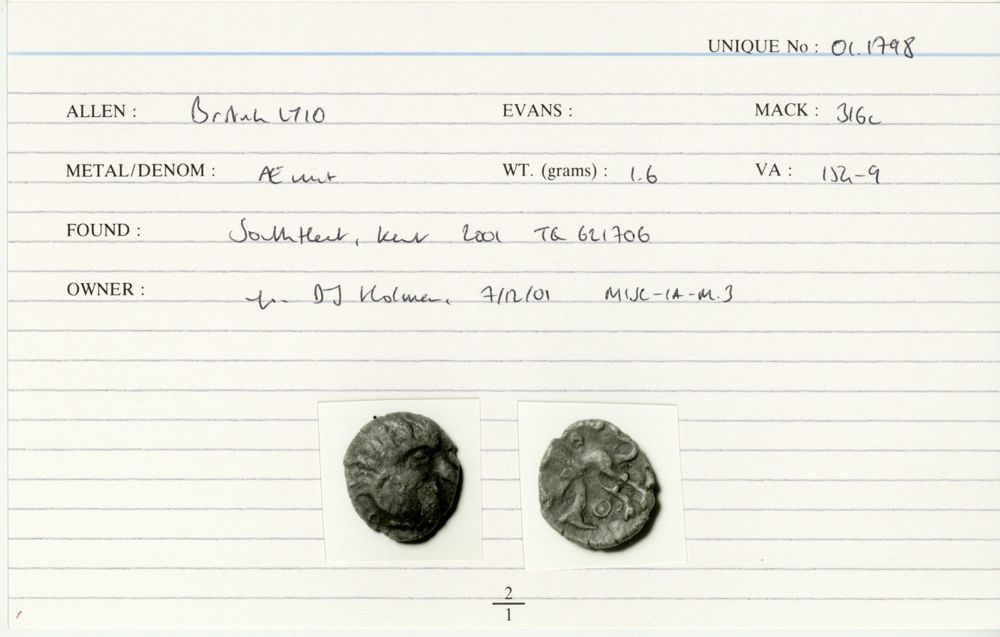 UNIQUE No : 01.1798
ALLEN : British LZ10 EVANS : MACK : 316c
METAL/DENOM : Æ unit WT. (grams) : 1.6 VA : 154-9
FOUND : Northfleet, Kent 2001 TQ 621706
OWNER : DJ Holman, 7/12/01 MISC-IA-M.3
2
1